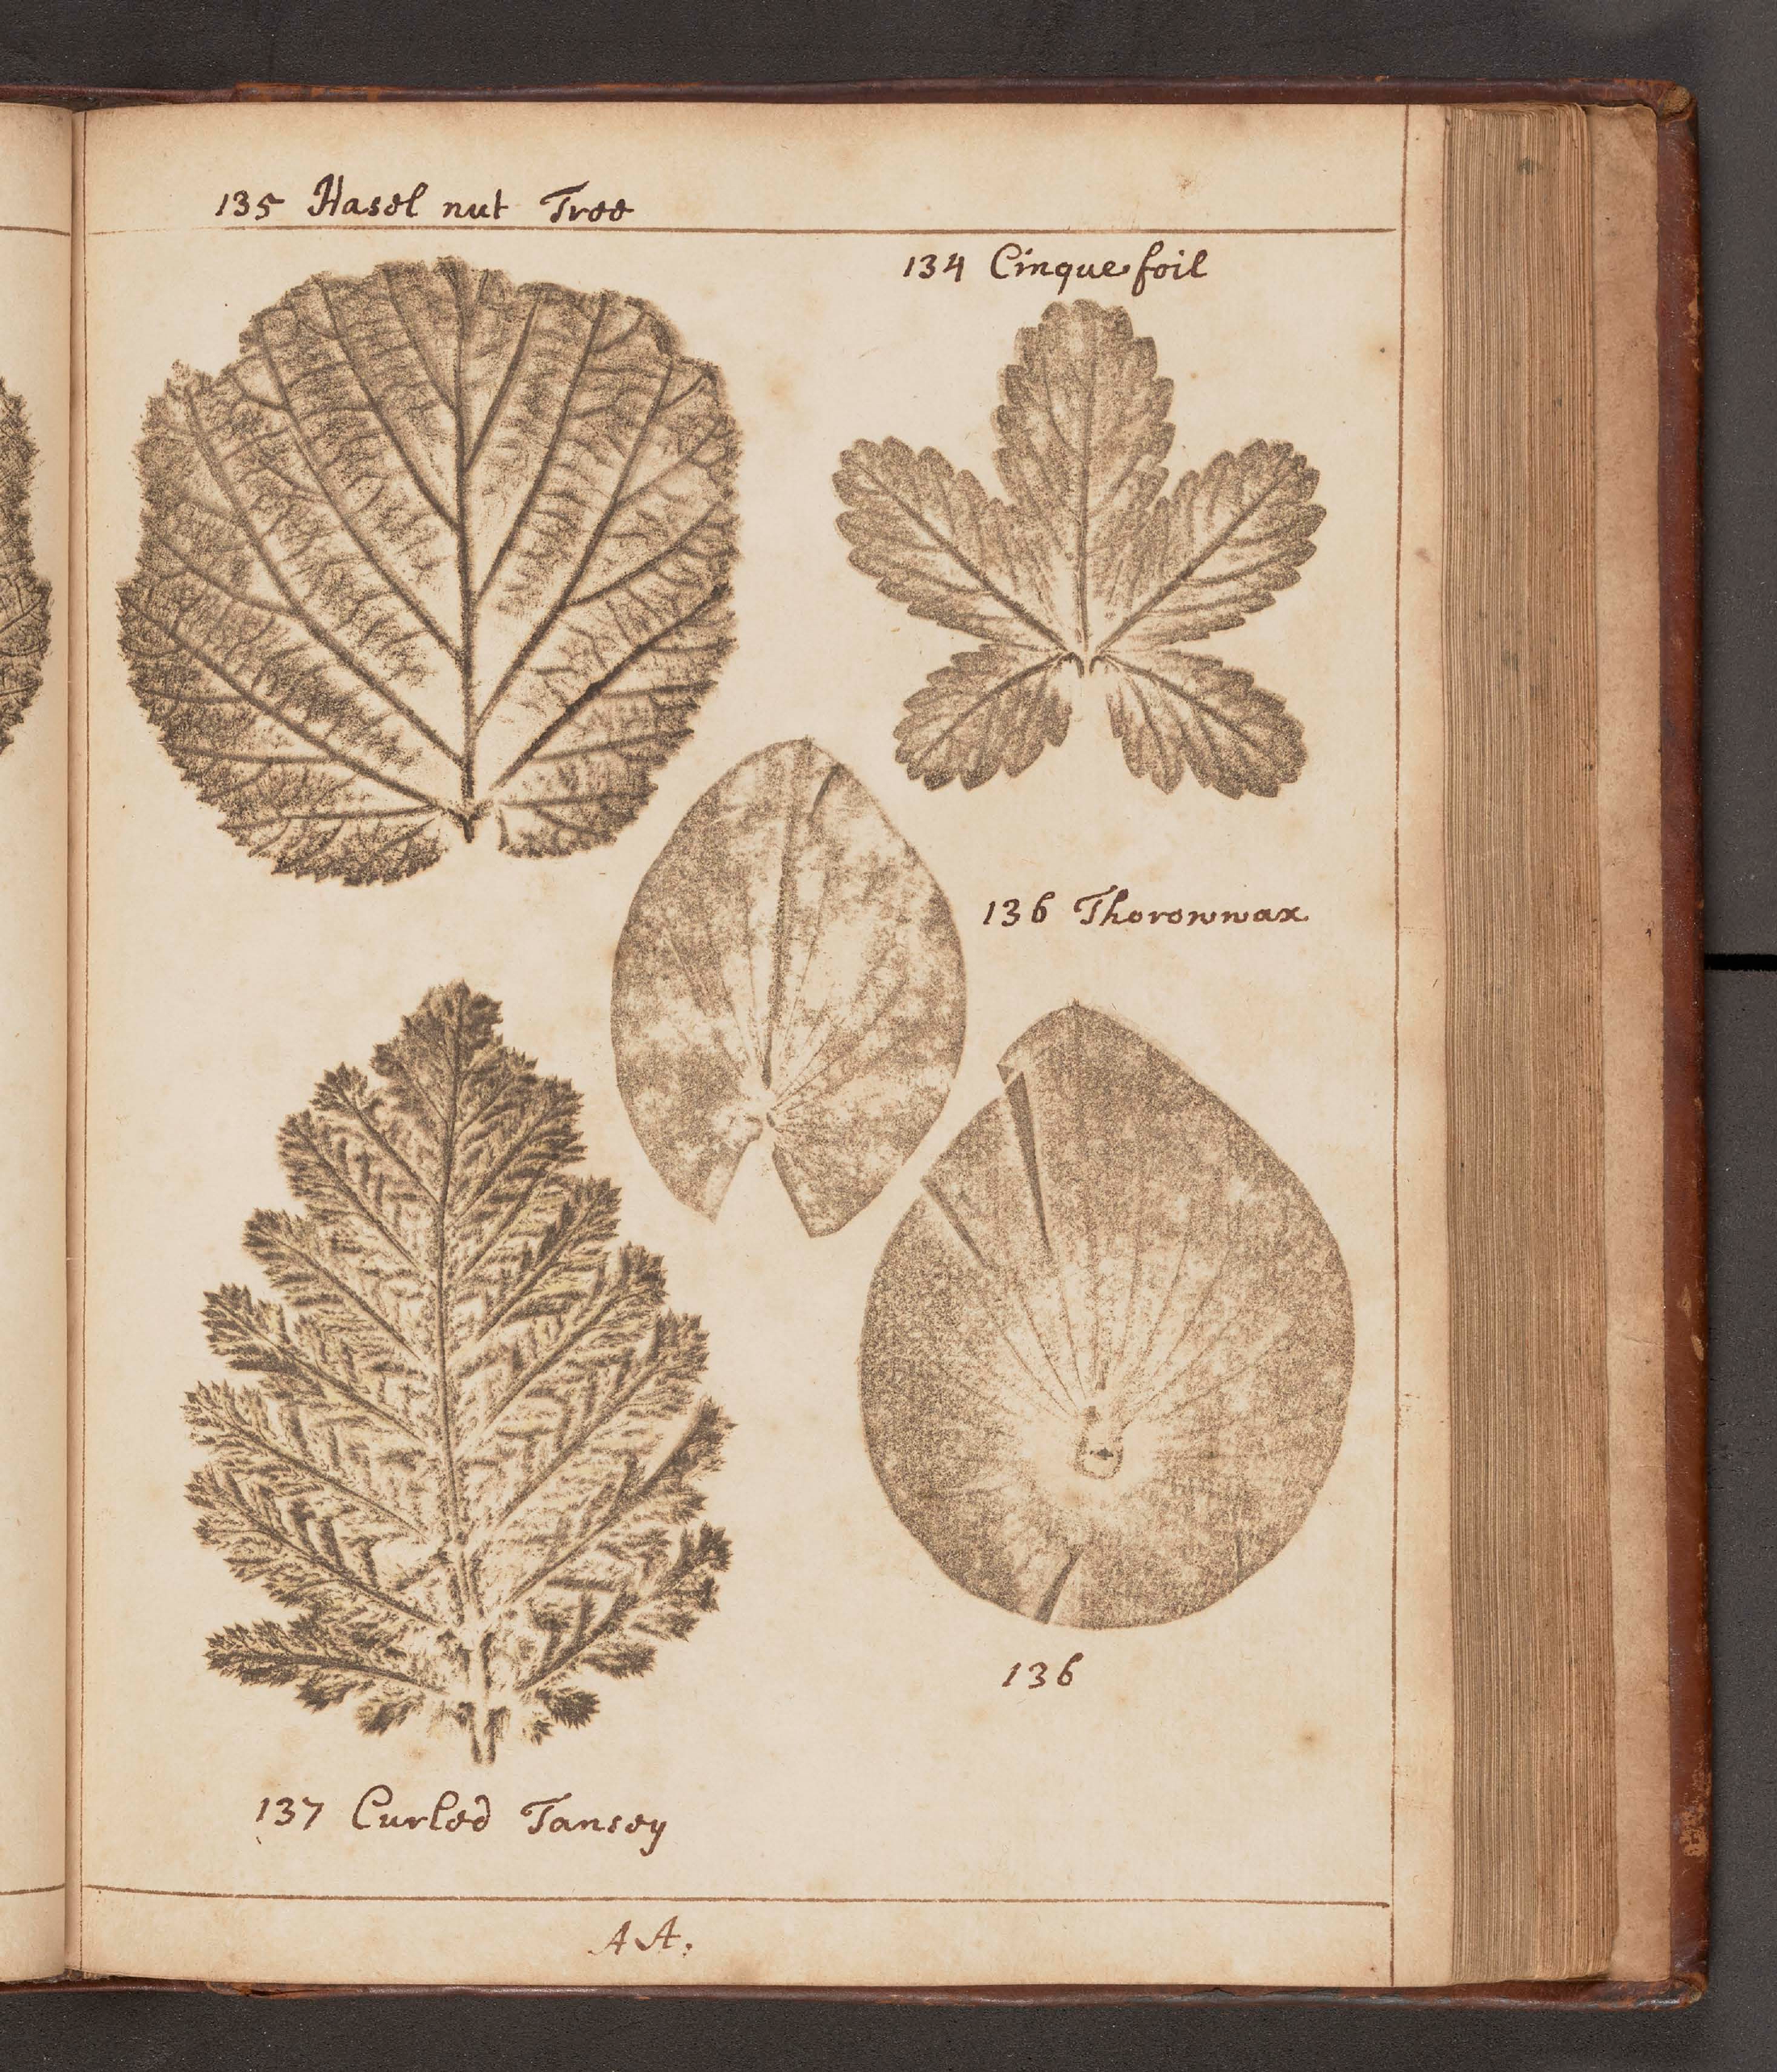 135 Hasel nut Tree
134 Cinquefoil
136 Thorowwax
136
137 Curled Tansey
AA.